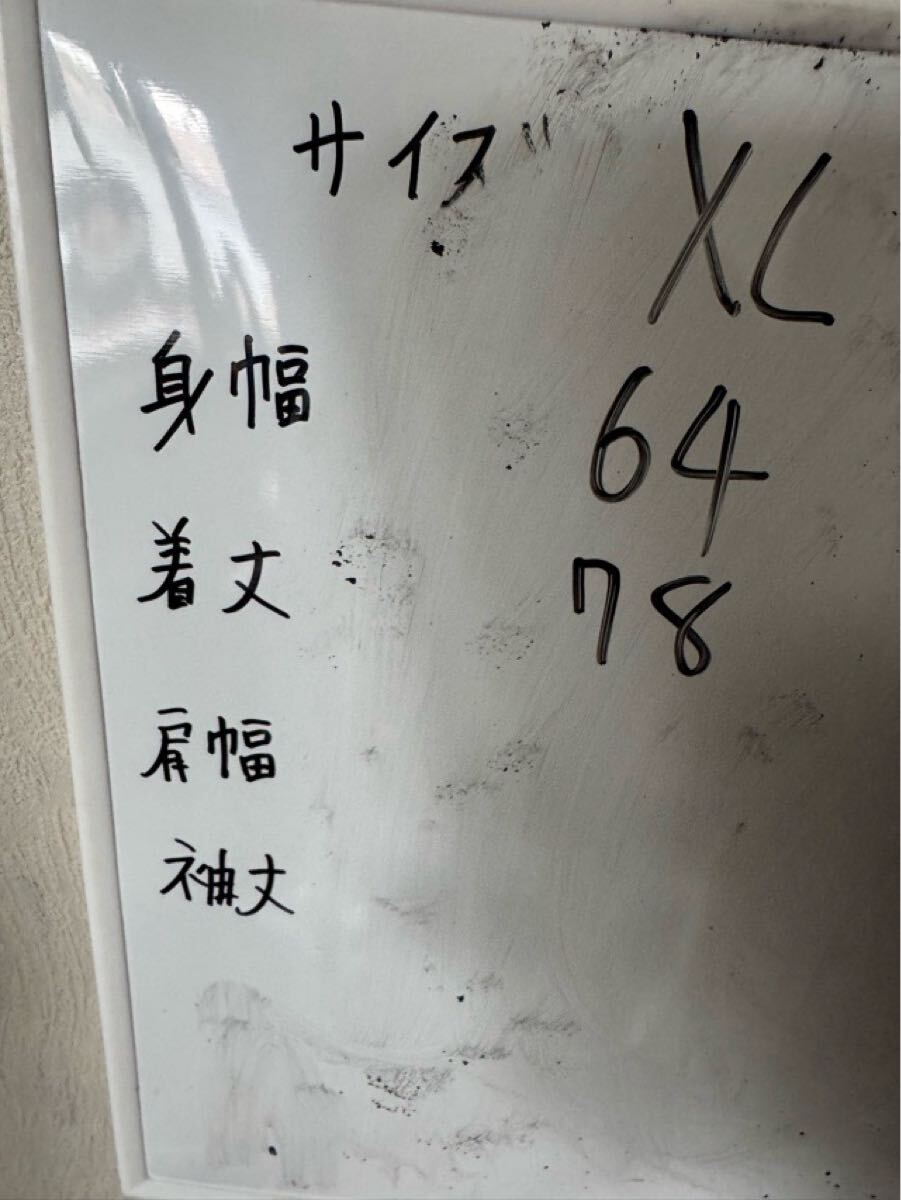 サイズ XL
身幅 64
着丈 78
肩幅
袖丈